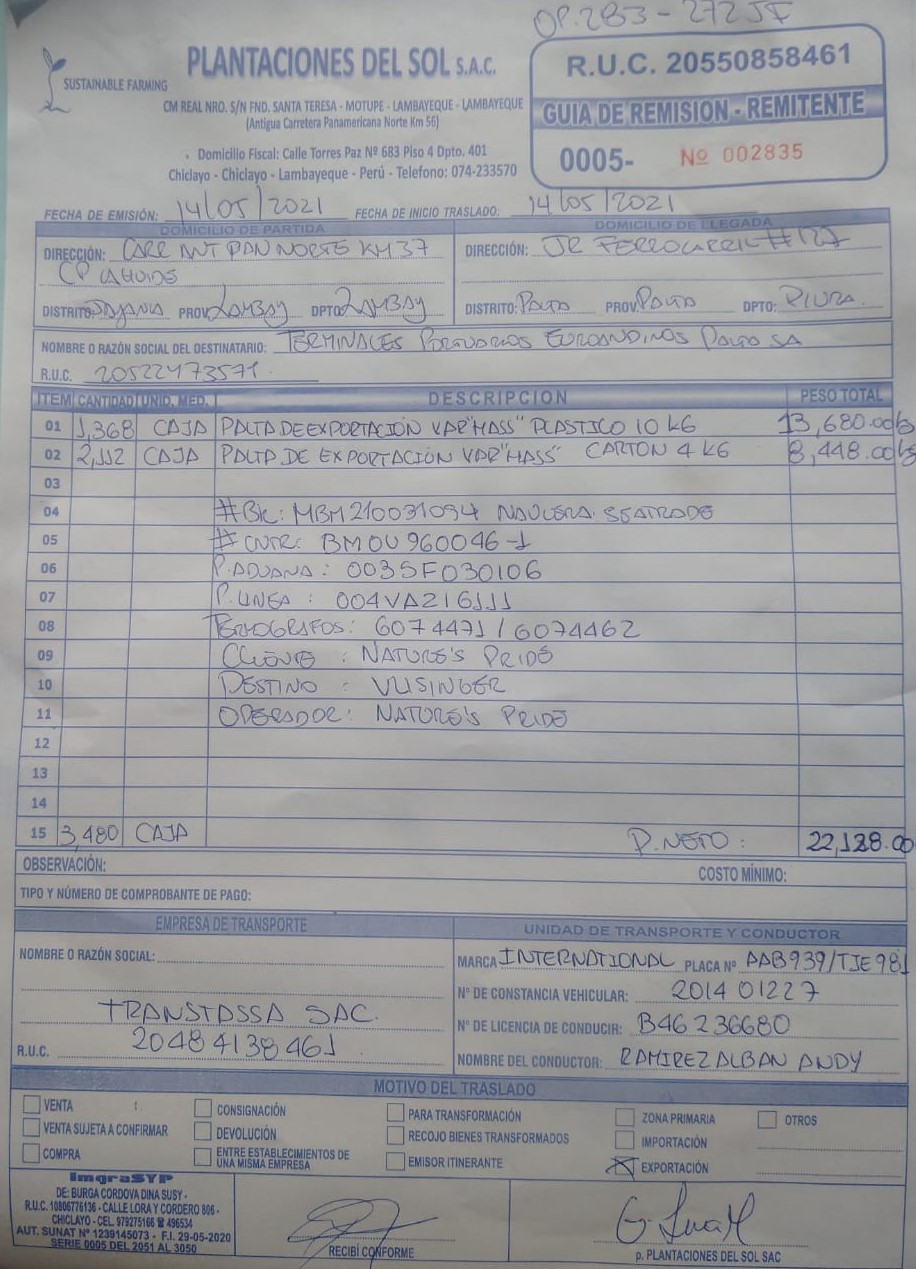 OP. 283 - 272 JF
SUSTAINABLE FARMING
PLANTACIONES DEL SOL S.A.C.
CM REAL NRO. S/N FND. SANTA TERESA - MOTUPE - LAMBAYEQUE - LAMBAYEQUE
(Antigua Carretera Panamericana Norte Km 56)
Domicilio Fiscal: Calle Torres Paz Nº 683 Piso 4 Dpto. 401
Chiclayo - Chiclayo - Lambayeque - Perú - Telefono: 074-233570
R.U.C. 20550858461
GUIA DE REMISION - REMITENTE
0005- Nº 002835
FECHA DE EMISIÓN: 14/05/2021 FECHA DE INICIO TRASLADO: 14/05/2021
DOMICILIO DE PARTIDA
DIRECCIÓN: CARR ANT PAN NORTE KM 37
CP CAHUIDE
DISTRITO: PROV: LAMBAY DPTO: LAMBAY
DOMICILIO DE LLEGADA
DIRECCIÓN: JR FERROCARRIL #127
DISTRITO: PAITA PROV: PAITA DPTO: PIURA.
NOMBRE O RAZÓN SOCIAL DEL DESTINATARIO: TERMINALES PORTUARIOS EUROANDINOS PAITA SA
R.U.C. 20522473571.
ITEM CANTIDAD UNID. MED. DESCRIPCION PESO TOTAL
01 1,368 CAJA PALTA DE EXPORTACIÓN VAR "HASS" PLASTICO 10 KG 13,680.00
02 2,112 CAJA PALTA DE EXPORTACIÓN VAR "HASS" CARTON 4 KG 8,448.00
03
04 #BK: MBM210031094 NAVIERA: SEATRADE
05 # CNTR: BMOU 960046-1
06 P. ADUANA: 0035F030106
07 P. LINEA: 004VA216111
08 TERMOGRAFOS: 6074471 / 6074462
09 CLIENTE: NATURE'S PRIDE
10 DESTINO: VLISINGER
11 OPERADOR: NATURE'S PRIDE
12
13
14
15 3,480 CAJA P. NETO: 22,128.00
OBSERVACIÓN: COSTO MÍNIMO:
TIPO Y NÚMERO DE COMPROBANTE DE PAGO:
EMPRESA DE TRANSPORTE
NOMBRE O RAZÓN SOCIAL:
TRANSTASSA SAC.
R.U.C. 20484138461
UNIDAD DE TRANSPORTE Y CONDUCTOR
MARCA INTERNATIONAL PLACA Nº AAB939/TJE981
Nº DE CONSTANCIA VEHICULAR: 201401227
Nº DE LICENCIA DE CONDUCIR: B46236680
NOMBRE DEL CONDUCTOR: RAMIREZ ALBAN ANDY
MOTIVO DEL TRASLADO
VENTA CONSIGNACIÓN PARA TRANSFORMACIÓN ZONA PRIMARIA OTROS
VENTA SUJETA A CONFIRMAR DEVOLUCIÓN RECOJO BIENES TRANSFORMADOS IMPORTACIÓN
COMPRA ENTRE ESTABLECIMIENTOS DE UNA MISMA EMPRESA EMISOR ITINERANTE X EXPORTACIÓN
ImgraSYP
DE: BURGA CORDOVA DINA SUSY -
R.U.C. 10806776136 - CALLE LORA Y CORDERO 806 -
CHICLAYO - CEL. 979275166 ☎ 496534
AUT. SUNAT Nº 1239145073 - F.I. 29-05-2020
SERIE 0005 DEL 2051 AL 3050
RECIBÍ CONFORME
p. PLANTACIONES DEL SOL SAC